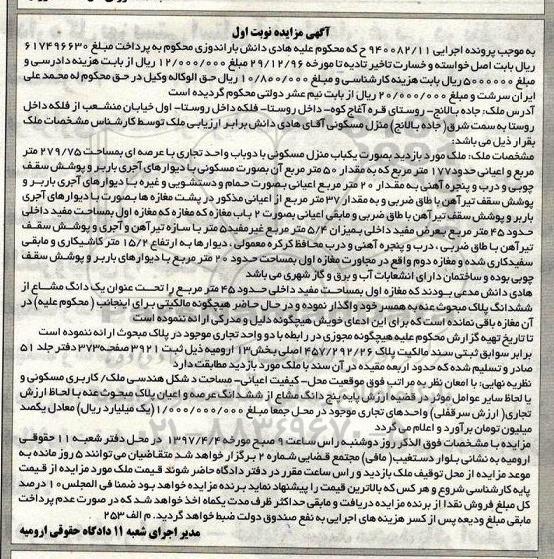 آگهی مزایده نوبت اول
به موجب پرونده اجرایی 940082/11 ح که محکوم علیه هادی دانش باراندوزی محکوم به پرداخت مبلغ 617496630
ریال بابت اصل خواسته و خسارت تاخیر تادیه تا مورخه 29/12/96 و مبلغ 12/000/000 ریال از بابت هزینه دادرسی و
مبلغ 5000000 ریال بابت هزینه کارشناسی و مبلغ 10/800/000 ریال حق الوکاله وکیل در حق محکوم له محمد علی
ایران سرشت و مبلغ 20/000/000 ریال از بابت نیم عشر دولتی محکوم گردیده است
آدرس ملک: جاده بالانج- روستای قره آغاج کوه- داخل روستا- فلکه داخل روستا- اول خیابان منشعب از فلکه داخل
روستا به سمت شرق (جاده بالانج) منزل مسکونی آقای هادی دانش برابر ارزیابی ملک توسط کارشناس مشخصات ملک
بقرار ذیل می باشد:
مشخصات ملک: ملک مورد بازدید بصورت یکباب منزل مسکونی با دوباب واحد تجاری با عرصه ای بمساحت 279/75 متر
مربع و اعیانی حدود 177 متر مربع که به مقدار 50 متر مربع آن بصورت مسکونی با دیوارهای آجری باربر و پوشش سقف
چوبی و درب و پنجره آهنی به مقدار 20 متر مربع اعیانی بصورت حمام و دستشویی و غیره با دیوارهای آجری باربر و
پوشش سقف تیرآهن با طاق ضربی و به مقدار 37 متر مربع از اعیانی مذکور در پشت مغازه ها بصورت با دیوارهای آجری
باربر و پوشش سقف تیرآهن با طاق ضربی و مابقی اعیانی بصورت 2 باب مغازه که مغازه که مغازه اول بمساحت مفید داخلی
حدود 45 متر مربع بعرض مفید داخلی بمیزان 5/4 متر مربع غیر مفید 5 متر با سازه تیرآهن و آجری و پوشش سقف
تیرآهن با طاق ضربی، درب و پنجره آهنی و درب محافظ کرکره معمولی، دیوارها به ارتفاع 15/2 متر کاشیکاری و مابقی
سفیدکاری شده و مغازه دوم واقع در مجاورت مغازه اول بمساحت حدود 20 متر مربع با دیوارهای باربر و پوشش سقف
چوبی بوده و ساختمان دارای انشعابات آب و برق و گاز شهری می باشد
هادی دانش مدعی بودند که مغازه اول بمساحت مفید داخلی حدود 45 متر مربع را تحت عنوان یک دانگ مشاع از
ششدانگ پلاک مبحوث عنه به همسر خود واگذار نموده و در حال حاضر هیچگونه مالکیتی برای اینجانب (محکوم علیه) در
آن مغازه باقی نمانده است که برای این ادعای خویش هیچگونه دلیل و مدرکی ارائه ننموده است
تا تاریخ تهیه گزارش محکوم علیه هیچگونه مجوزی در رابطه با دو واحد تجاری موجود در پلاک مبحوث ارائه ننموده است
برابر سوابق ثبتی سند مالکیت پلاک 457/292/26 اصلی بخش 13 ارومیه ذیل ثبت 3921 صفحه 373 دفتر جلد 51
صادر و تسلیم شده که حدود اربعه مقیده در آن سند با ملک مورد بازدید مطابقت دارد
نظریه نهایی: با امعان نظر به مراتب فوق موقعیت محل- کیفیت اعیانی- مساحت و شکل هندسی ملک/ کاربری مسکونی و
یا لحاظ سایر عوامل موثر در قضیه ارزش پایه پنج دانگ مشاع از ششدانگ عرصه و اعیان پلاک مبحوث عنه با لحاظ ارزش
تجاری (ارزش سرقفلی) واحدهای تجاری موجود در محل جمعا مبلغ 1/000/000/000 (یک میلیارد ریال) معادل یکصد
میلیون تومان برآورد و اعلام می گردد
مزایده با مشخصات فوق الذکر روز دوشنبه راس ساعت 9 صبح مورخه 1397/4/4 در محل دفتر شعبه 11 حقوقی
ارومیه به نشانی بلوار دستغیب (مافی) مجتمع قضایی شماره 2 برگزار خواهد شد متقاضیان می توانند 5 روز مانده به
موعد مزایده از محل توقیف ملک بازدید و راس ساعت مقرر در دفتر دادگاه حاضر شوند قیمت ملک مورد مزایده از قیمت
پایه کارشناسی شروع و هر کس که بالاترین قیمت را پیشنهاد نماید برنده مزایده خواهد بود ضمنا فی المجلس 10 درصد
کل مبلغ فروش نقدا از برنده مزایده دریافت و مابقی حداکثر ظرف مدت یکماه اخذ خواهد شد که در صورت عدم پرداخت
مابقی مبلغ ودیعه پس از کسر هزینه های اجرایی به نفع صندوق دولت ضبط خواهد گردید. م الف 253
مدیر اجرای شعبه 11 دادگاه حقوقی ارومیه